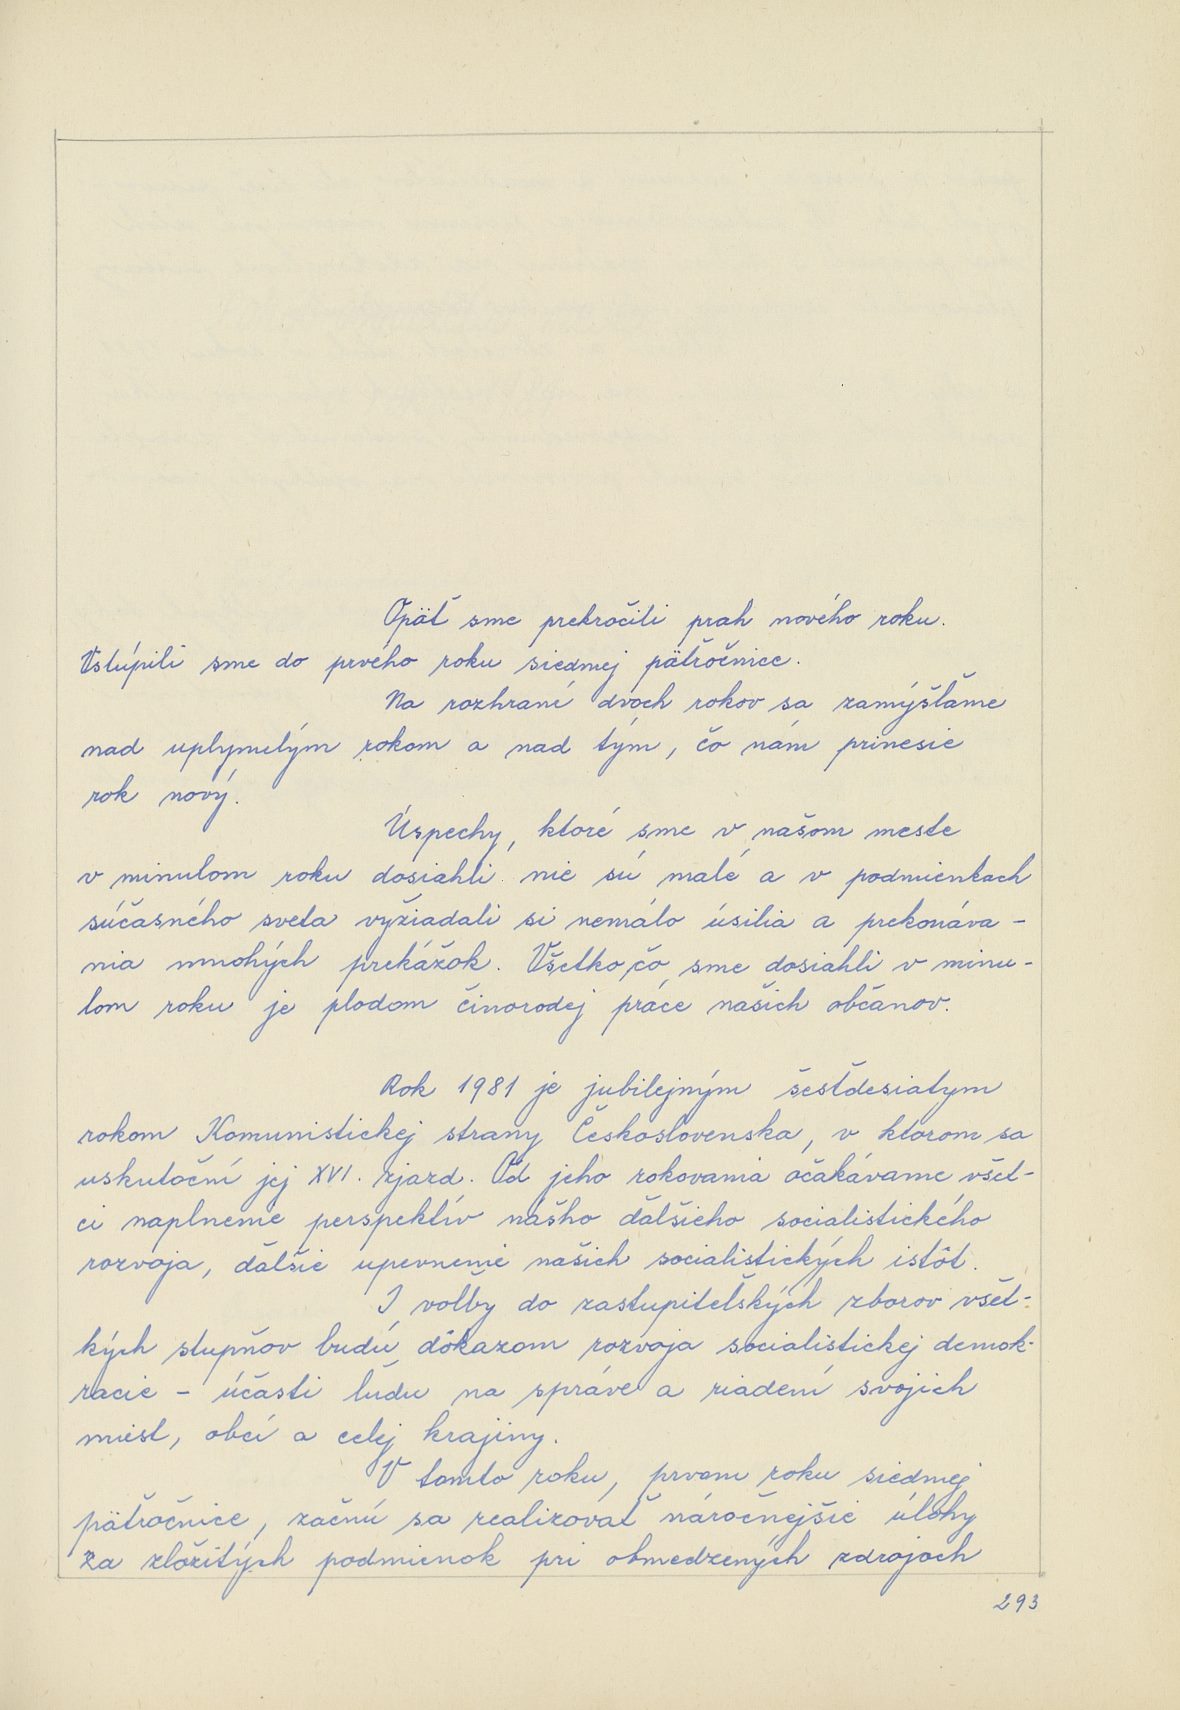 Opäť sme prekročili prah nového roku.
Vstúpili sme do prvého roku siedmej päťročnice.
Na rozhraní dvoch rokov sa zamýšľame
nad uplynulým rokom a nad tým, čo nám prinesie
rok nový.
Úspechy, ktoré sme v našom meste
v minulom roku dosiahli nie sú malé a v podmienkach
súčasného sveta vyžiadali si nemálo úsilia a prekonáva-
nia mnohých prekážok. Všetko, čo sme dosiahli v minu-
lom roku je plodom činorodej práce našich občanov.
Rok 1981 je jubilejným šesťdesiatym
rokom Komunistickej strany Československa, v ktorom sa
uskutoční jej XVI. zjazd. Od jeho rokovania očakávame všet-
ci naplnenie perspektív nášho ďalšieho socialistického
rozvoja, ďalšie upevnenie našich socialistických istôt.
I voľby do zastupiteľských zborov všet-
kých stupňov budú dôkazom rozvoja socialistickej demok-
racie - účasti ľudu na správe a riadení svojich
miest, obcí a celej krajiny.
V tomto roku, prvom roku siedmej
päťročnice, začnú sa realizovať náročnejšie úlohy
za zložitých podmienok pri obmedzených zdrojoch
293